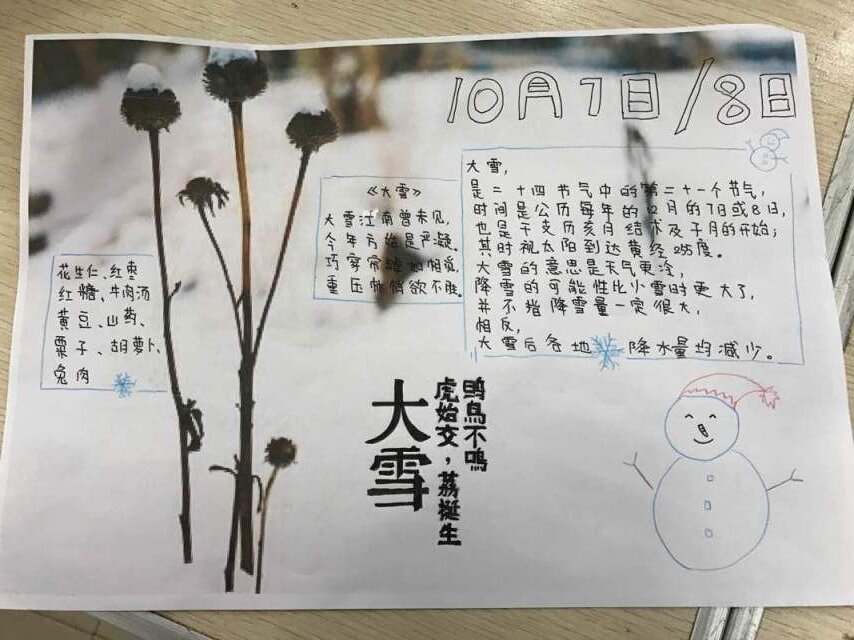 10月7日/8日
大雪,
是二十四节气中的第二十一个节气,
时间是公历每年的12月的7日或8日,
也是干支历亥月结术及子月的开始;
其时视太阳到达黄经255度。
大雪的意思是天气更冷,
降雪的可能性比小雪时更大了,
并不指降雪量一定很大,
相反,
大雪后各地降水量均减少。
《大雪》
大雪江南曾未见,
今年方始是严凝。
巧穿帘 如相觅,
重压 欲不胜。
花生仁、红枣
红糖、牛肉汤
黄豆、山药、
栗子、胡萝卜、
兔肉
大雪
鸣鸟不鳴
虎始交，荔挺生